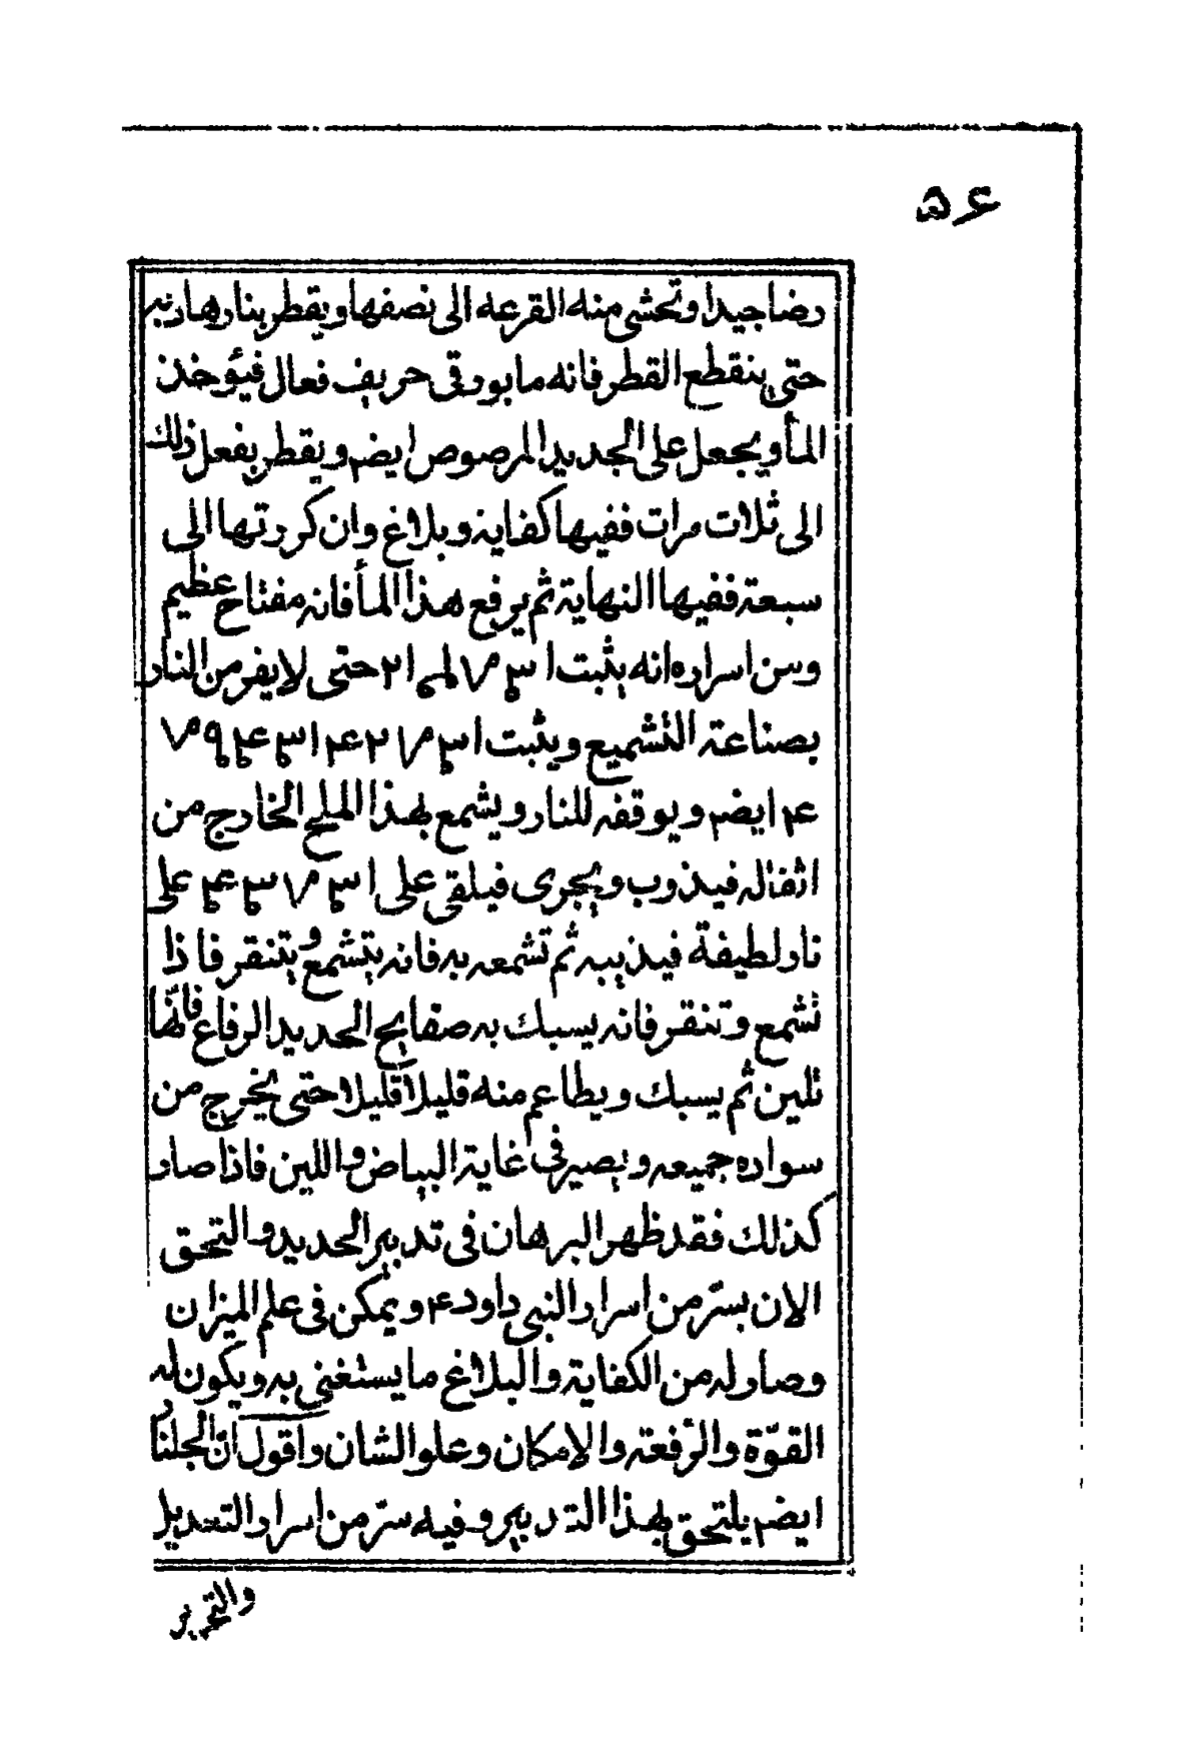 ۵۶
رضا جيدا وتحشى منه القرعه الى نصفها ويقطر بنار هادئه
حتى ينقطع القطر فانه ما بورقى حريف فعال فيؤخذ
المأ ويجعل على الجديد المرصوص ايضم ويقطر يفعل ذلك
الى ثلاث مرات ففيها كفاية وبلاغ وان كررتها الى
سبعة ففيها النهاية ثم يرفع هذا المأ فانه مفتاح عظيم
ومن اسراره انه يثبت حتى لا يفر من النار
بصناعة التشميع ويثبت
ايضم ويوقفه للنار ويشمع بهذا الملح الخارج من
اثفاله فيذوب ويجرى فيلقى على على
نار لطيفة فيذيبه ثم تشمعه به فانه يتشمع ويتنقر فاذا
تشمع وتنقر فانه يسبك به صفايح الحديد الرفاع فانها
تلين ثم يسبك ويطاعم منه قليلا قليلا حتى يخرج من
سواده جميعه ويصير فى غاية البياض واللين فاذا صار
كذلك فقد ظهر البرهان فى تدبير الحديد والتحق
الان بسرّ من اسرار النبى داود ۴ ويمكن فى علم الميزان
وصار له من الكفاية والبلاغ ما يستغنى به ويكون له
القوّة والرفعة والامكان وعلو الشان واقول ان
ايضم يلتحق بهذا التدبير وفيه سرّ من اسرار التعديل
والتحرير